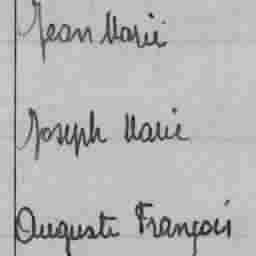 Jean Marie
Joseph Marie
Auguste François